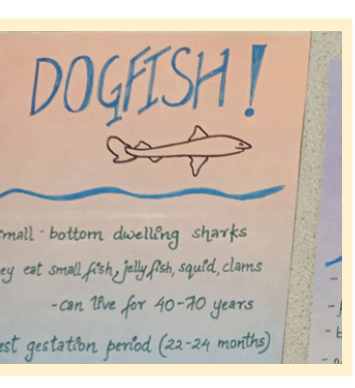 DOGFISH!
mall-bottom dwelling sharks
ey eat small fish, jelly fish, squid, clams
-can live for 40-70 years
est gestation period (22-24 months)